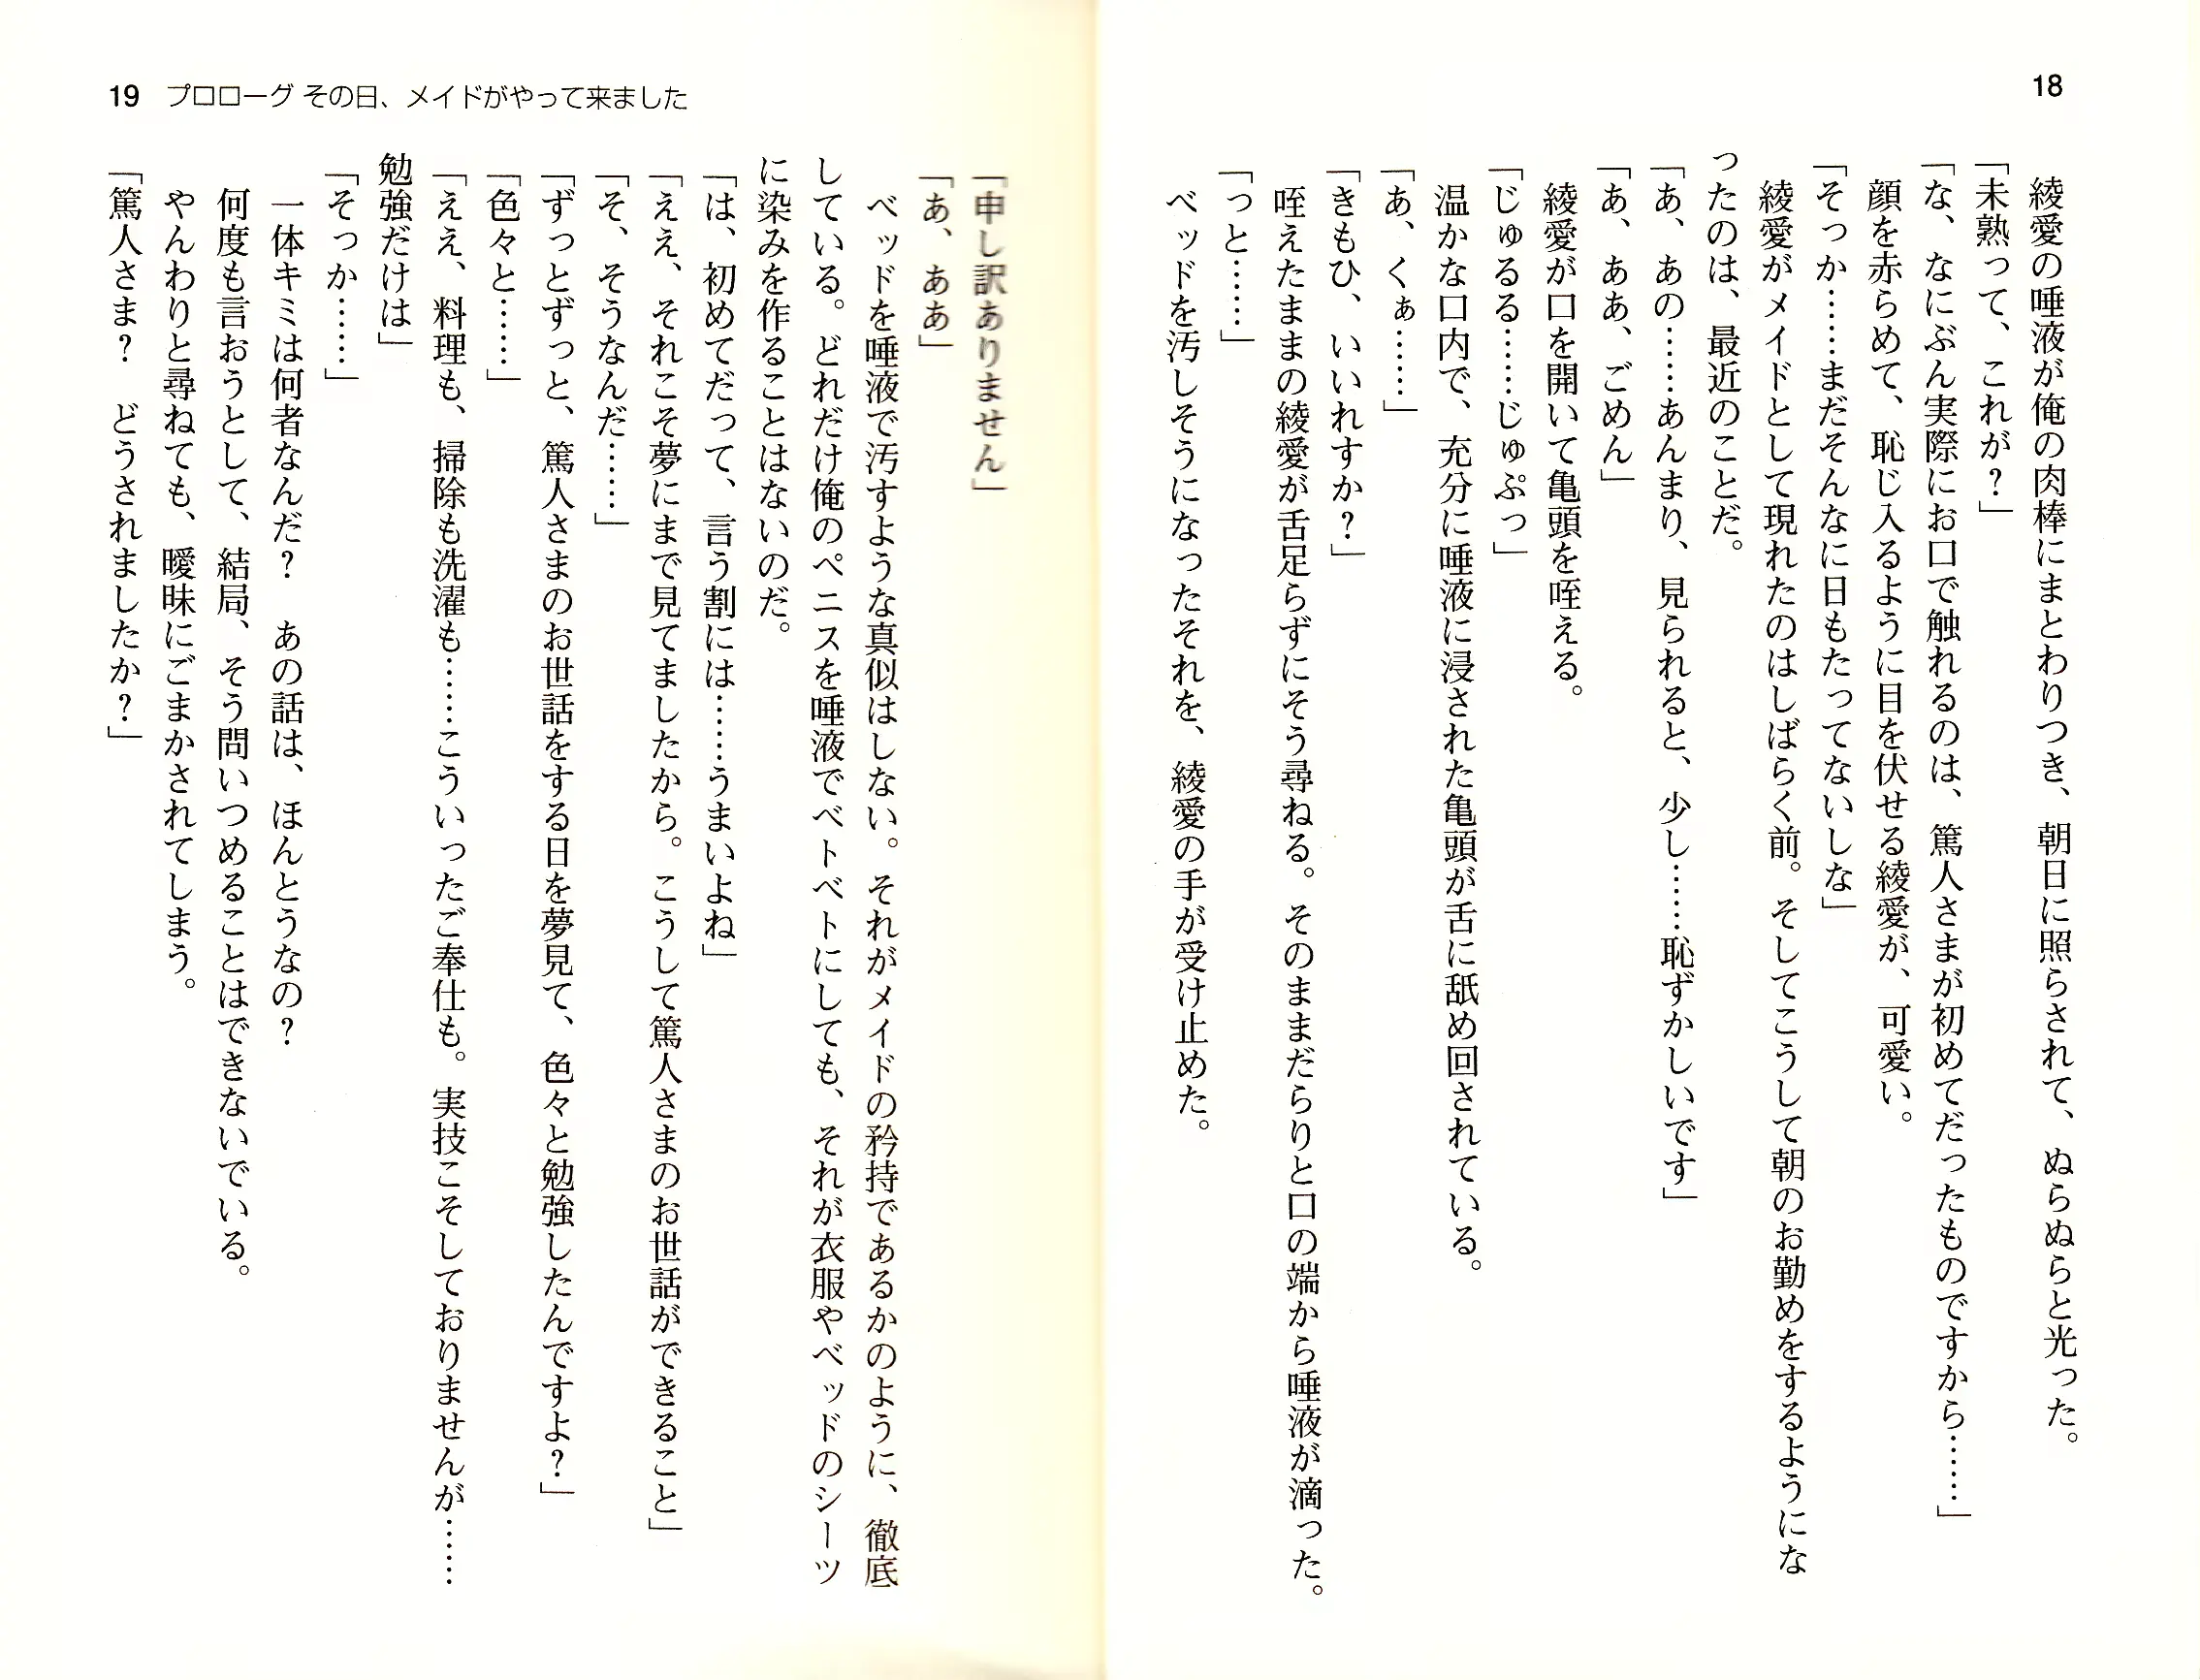 18
綾愛の唾液が俺の肉棒にまとわりつき、朝日に照らされて、ぬらぬらと光った。
「未熟って、これが？」
「な、なにぶん実際にお口で触れるのは、篤人さまが初めてだったものですから……」
顔を赤らめて、恥じ入るように目を伏せる綾愛が、可愛い。
「そっか……まだそんなに日もたってないしな」
綾愛がメイドとして現れたのはしばらく前。そしてこうして朝のお勤めをするようにな
ったのは、最近のことだ。
「あ、あの……あんまり、見られると、少し……恥ずかしいです」
「あ、ああ、ごめん」
綾愛が口を開いて亀頭を咥える。
「じゅるる……じゅぷっ」
温かな口内で、充分に唾液に浸された亀頭が舌に舐め回されている。
「あ、くぁ……」
「きもひ、いいれすか？」
咥えたままの綾愛が舌足らずにそう尋ねる。そのままだらりと口の端から唾液が滴った。
「っと……」
ベッドを汚しそうになったそれを、綾愛の手が受け止めた。
19 プロローグ その日、メイドがやって来ました
「申し訳ありません」
「あ、ああ」
ベッドを唾液で汚すような真似はしない。それがメイドの矜持であるかのように、徹底
している。どれだけ俺のペニスを唾液でベトベトにしても、それが衣服やベッドのシーツ
に染みを作ることはないのだ。
「は、初めてだって、言う割には……うまいよね」
「ええ、それこそ夢にまで見てましたから。こうして篤人さまのお世話ができること」
「そ、そうなんだ……」
「ずっとずっと、篤人さまのお世話をする日を夢見て、色々と勉強したんですよ？」
「色々と……」
「ええ、料理も、掃除も洗濯も……こういったご奉仕も。実技こそしておりませんが……
勉強だけは」
「そっか……」
一体キミは何者なんだ？　あの話は、ほんとうなの？
何度も言おうとして、結局、そう問いつめることはできないでいる。
やんわりと尋ねても、曖昧にごまかされてしまう。
「篤人さま？　どうされましたか？」